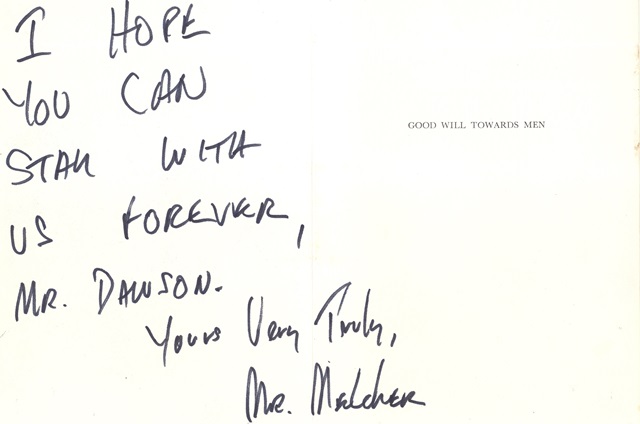 I HOPE
YOU CAN
STAY WITH
US FOREVER,
MR. DAWSON.
Yours Very Truly,
MR. MELCHER
GOOD WILL TOWARDS MEN